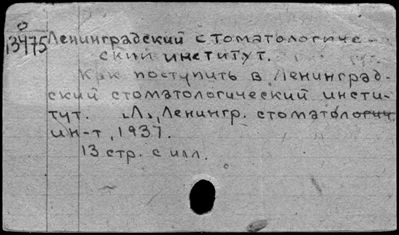 13475 Ленинградский стоматологиче-
ский институт.
Как поступить в Ленинград-
ский стоматологический инсти-
тут. Л., Ленингр. стоматологич.
ин-т, 1937.
13 стр. с илл.